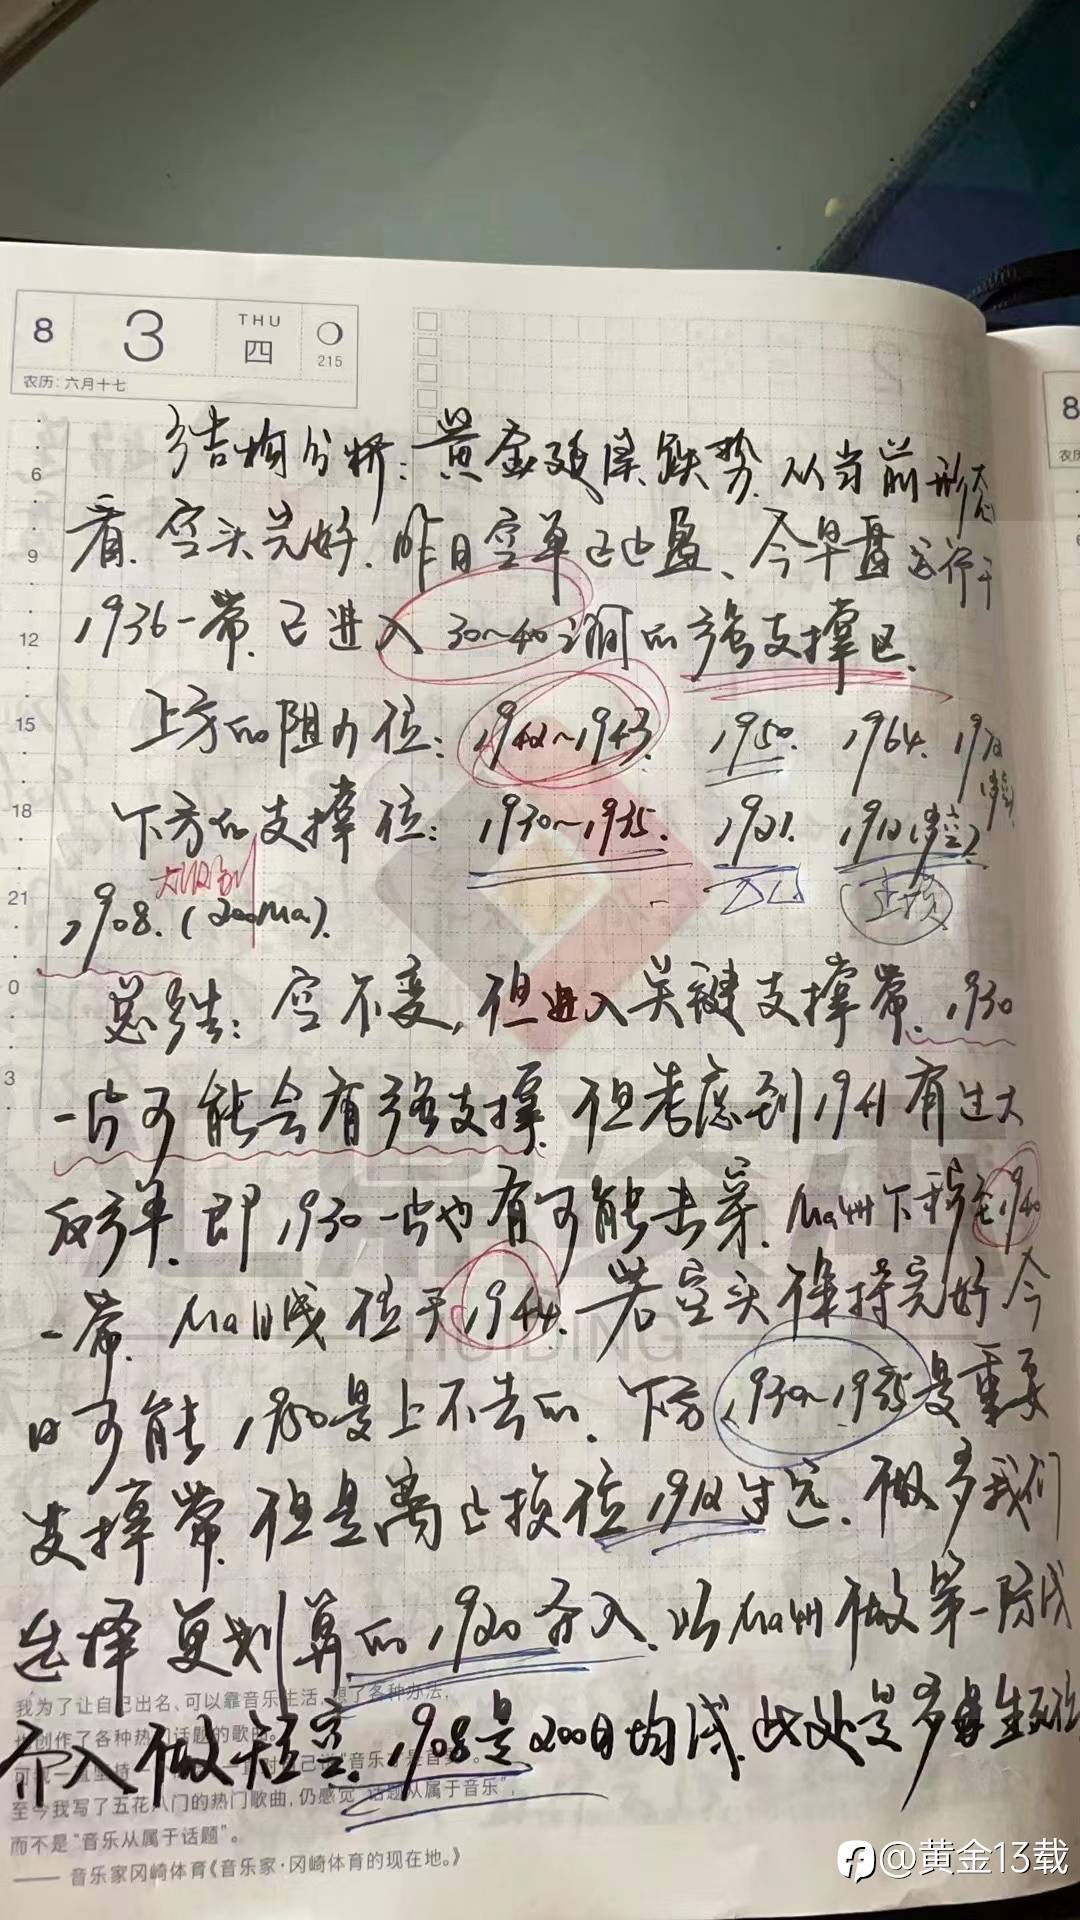 8 3 THU 四 215
农历: 六月十七
8
农历
结构分析: 黄金延续跌势. 从当前形态
6
看. 空头完好. 昨日空单已出盈、今早盘运行于
9
1936一带. 已进入30~40之间的强支撑区.
12
上方的阻力位: 1942~1943. 1950. 1964. 1972
15
下方的支撑位: 1930~1935. 1921. 1912(
18
大级别 止损
21
1908. (200Ma).
0
总结: 空不变, 但进入关键支撑带. 1930
3
一片可能会有强支撑. 但考虑到1941有过大
反弹. 即1930一片也有可能击穿. Ma4H下移至1940
一带. Ma日线位于1944. 若空头保持完好 今
日可能1950是上不去的. 下方1930~1935是重要
支撑带. 但是离止损位1912过远. 做多我们
选择更划算的1920介入. 以Ma4H做第一阻线
介入做短空. 1908是200日均线. 此处是多空生死
我为了让自己出名、可以靠音乐生活、想了各种办法,
也创作了各种热门话题的歌曲。
至今我写了五花八门的热门歌曲, 仍感觉"话题从属于音乐",
而不是"音乐从属于话题"。
—— 音乐家冈崎体育《音乐家·冈崎体育的现在地。》
HUIDING
@黄金13载